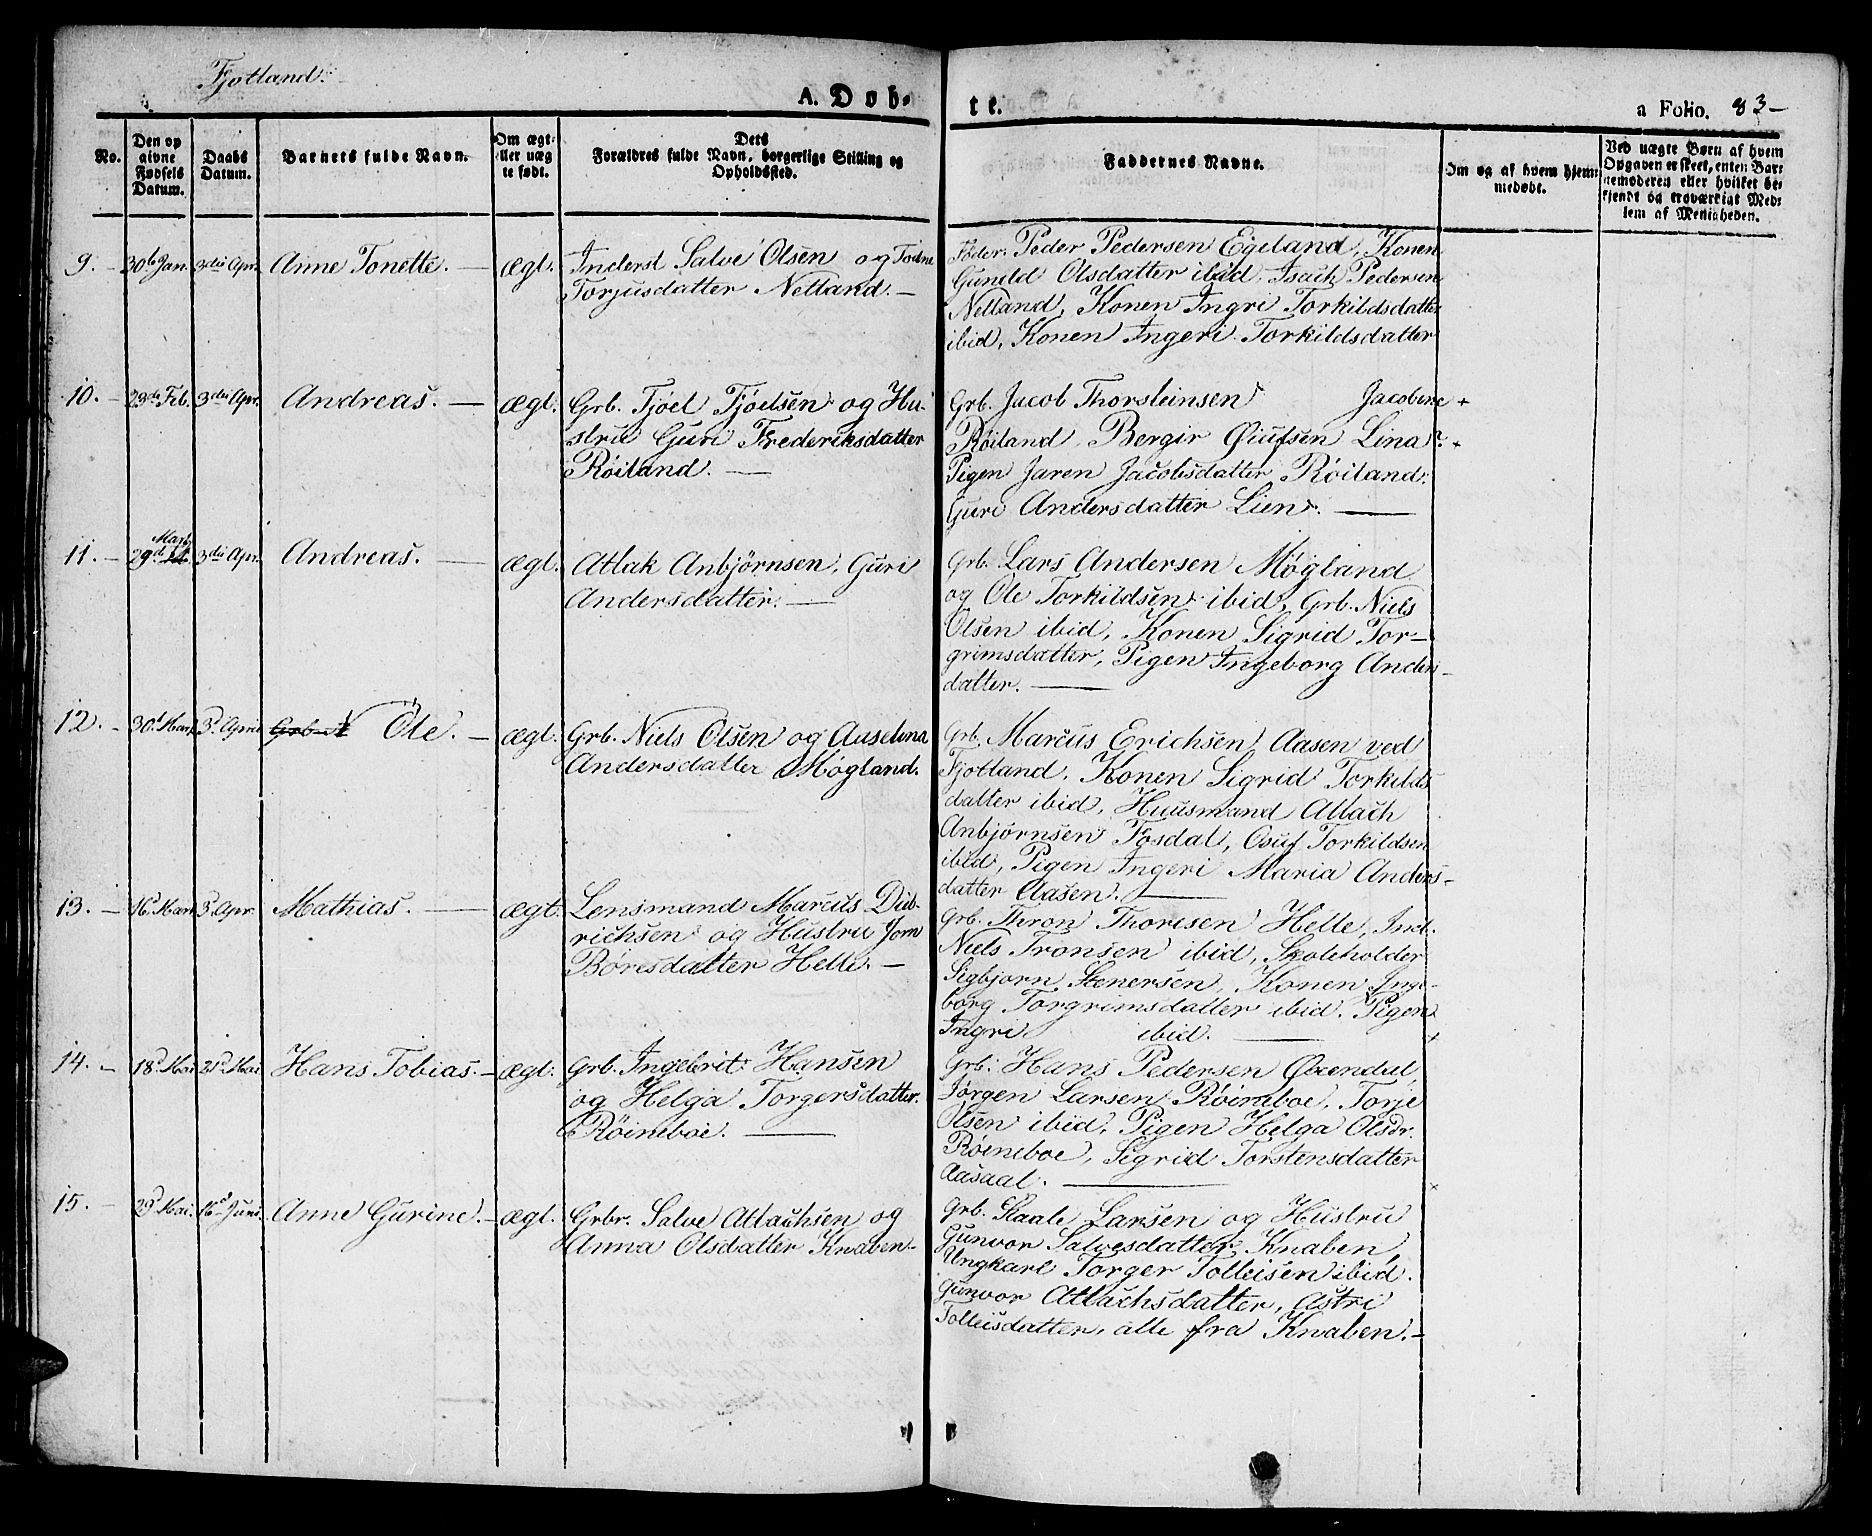 Fjotland.
A. Døb-
te.
a Folio. 83-
No.
Den op
givne
Fødsels
Datum.
Daabs
Datum.
Barnets fulde Navn.
Om ægt-
eller uæg
te født.
Dets
Forældres fulde Navn, borgerlige Stilling og
Opholdssted.
Faddernes Navne.
Om og af hvem hjem-
medøbt.
Ved uægte Børn af hvem
Opgaven er skeet, enten Bar-
nemoderen eller hvilket be-
kjendt og troværdigt Med-
lem af Menigheden.
9. - 30te Jan. 3die Apr. Anne Tonette. - ægt. Inderst Salve Olsen og Todne
Torjusdatter Netland. -
Peder Pedersen Egeland, Konen
Gunild Olsdatter ibid, Isach Pedersen
Netland, Konen Ingri Torkildsdatter
ibid, Konen Ingeri Torkildsdatter
10. - 23de Feb. 3die Apr. Andreas. - ægt. Grb. Fjoel Fjoelsen og Hu-
stru Guri Frederiksdatter
Røiland. -
Grb. Jacob Thorsteinsen Jacobine +
Røiland, Bergir Lina? +
Pigen Jaren Jacobsdatter Røiland.
Guri Andersdatter Lien. -
11. - Marts
29d 3die Apr. Andreas. - ægt. Atlak Anbjørnsen, Guri
Andersdatter. -
Grb. Lars Andersen Møgland
og Ole Torkildsen ibid, Grb. Niels
Olsen ibid, Konen Sigrid Tor-
grimsdatter, Pigen Ingeborg Anders-
datter. -
12. - 30d Mars 3d April Ole. - ægt. Grb. Niels Olsen og Auselina
Andersdatter Møgland.
Grb. Marcus Erichsen Aasen ved
Fjotland, Konen Sigrid Torkilds
datter ibid, Huusmand Atlach
Anbjørnsen Fosdal, Osuf Torkildsen
ibid, Pigen Ingeri Maria Anders-
datter Aasen. -
13. - 16d Mars 3d Apr. Mathias. - ægt. Lensmand Marcus Did-
richsen og Hustru Jorn
Børesdatter Helle. -
Grb. Thron Thoresen Helle, Ind.
Niels Tronsen ibid, Skoleholder
Sigbjorn Stenersen, Konen Inge-
borg Torgrimsdatter ibid. Pigen
Ingri ibid. - +
14. - 18d Mai 21d Mai Hans Tobias. - ægt. Grb. Ingebrit Hansen
og Helga Torgersdatter
Røineboe. -
Grb. Hans Pedersen
Jørgen Larsen Røineboe, Torje
Olsen ibid, Pigen Helga Olsdr.
Røineboe, Sigrid Torstensdatter
Aasaal. - +
15. - 29d Mai. 16d Juni. Anne Gurine. - ægt. Grbr. Salve Atlachsen og
Anna Olsdatter Knaben -
Grb. Staale Larsen og Hustru
Gunvor Salvesdatter Knaben,
Ungkarl Torger Tolleisen ibid.
Gunvor Atlachsdatter, Astri
Tolleisdatter, alle fra Knaben. -